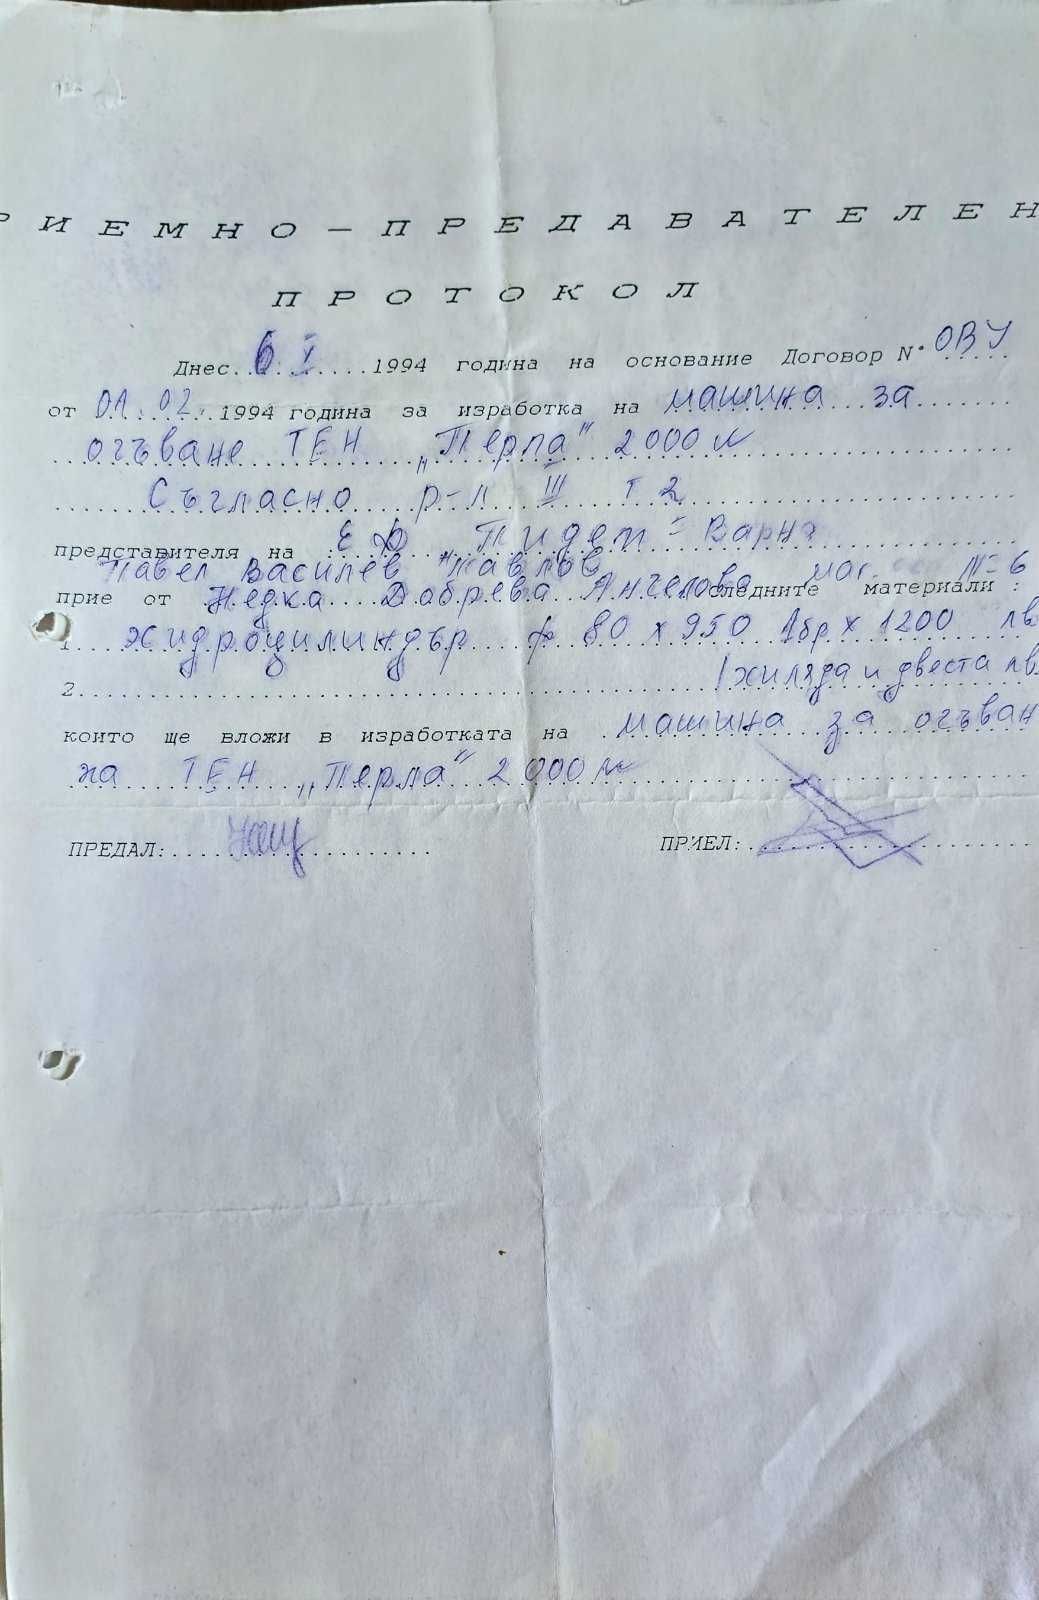 РИЕМНО-ПРЕДАВАТЕЛЕН
ПРОТОКОЛ
Днес..6.V.....1994 година на основание Договор N° ОВУ
от 01.02.1994 година за изработка на машина за
огъване ТЕН "Перла" 2000 м
Съгласно р-л III т 2
представителя на ЕФ Пидет - Варна
Павел Василев Павлов маг. N=6
прие от Недка Добрева Ангелова следните материали :
1. хидроцилиндър ф 80 х 950 1бр х 1200 лв
2. /хиляда и двеста лв
които ще вложи в изработката на машина за огъван
на ТЕН "Перла" 2000 м
ПРЕДАЛ:
ПРИЕЛ: